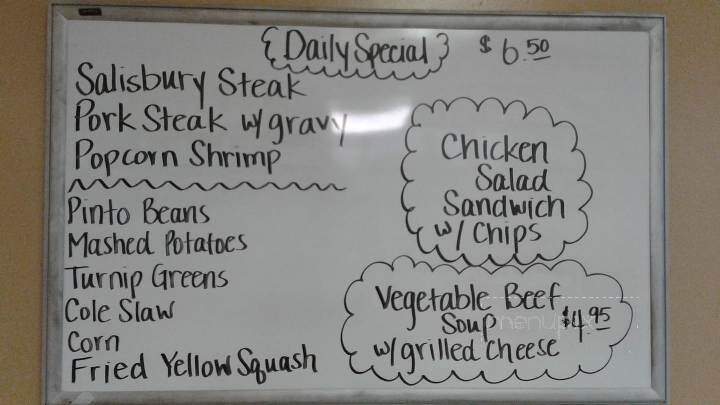 {Daily Special} $6.50
Salisbury Steak
Pork Steak w/ gravy
Popcorn Shrimp
Pinto Beans
Mashed Potatoes
Turnip Greens
Cole Slaw
Corn
Fried Yellow Squash
Chicken
Salad
Sandwich
w/ Chips
Vegetable Beef
Soup $4.95
w/ grilled cheese